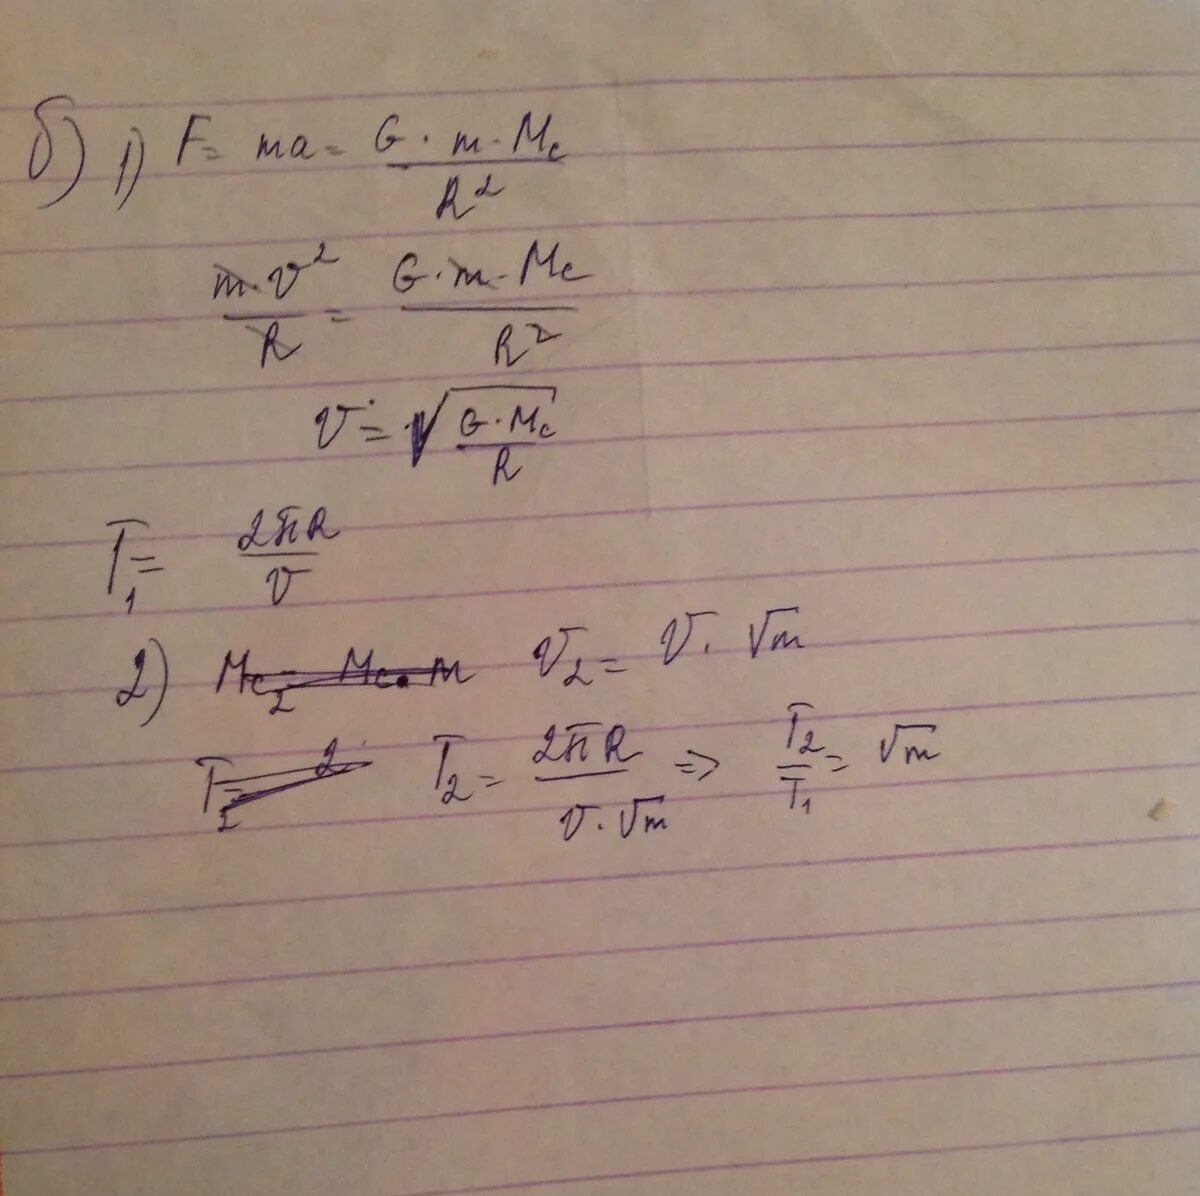 б) 1) F = ma = G · m · Mc / R²
m · v² / R = G · m · Mc / R²
v = √(G · Mc / R)
T₁ = 2πR / v
2) Mc₂ = Mc · m v₂ = v · √m
T₂ = 2 T₂ = 2πR / v · √m ⇒ T₂ / T₁ = √m